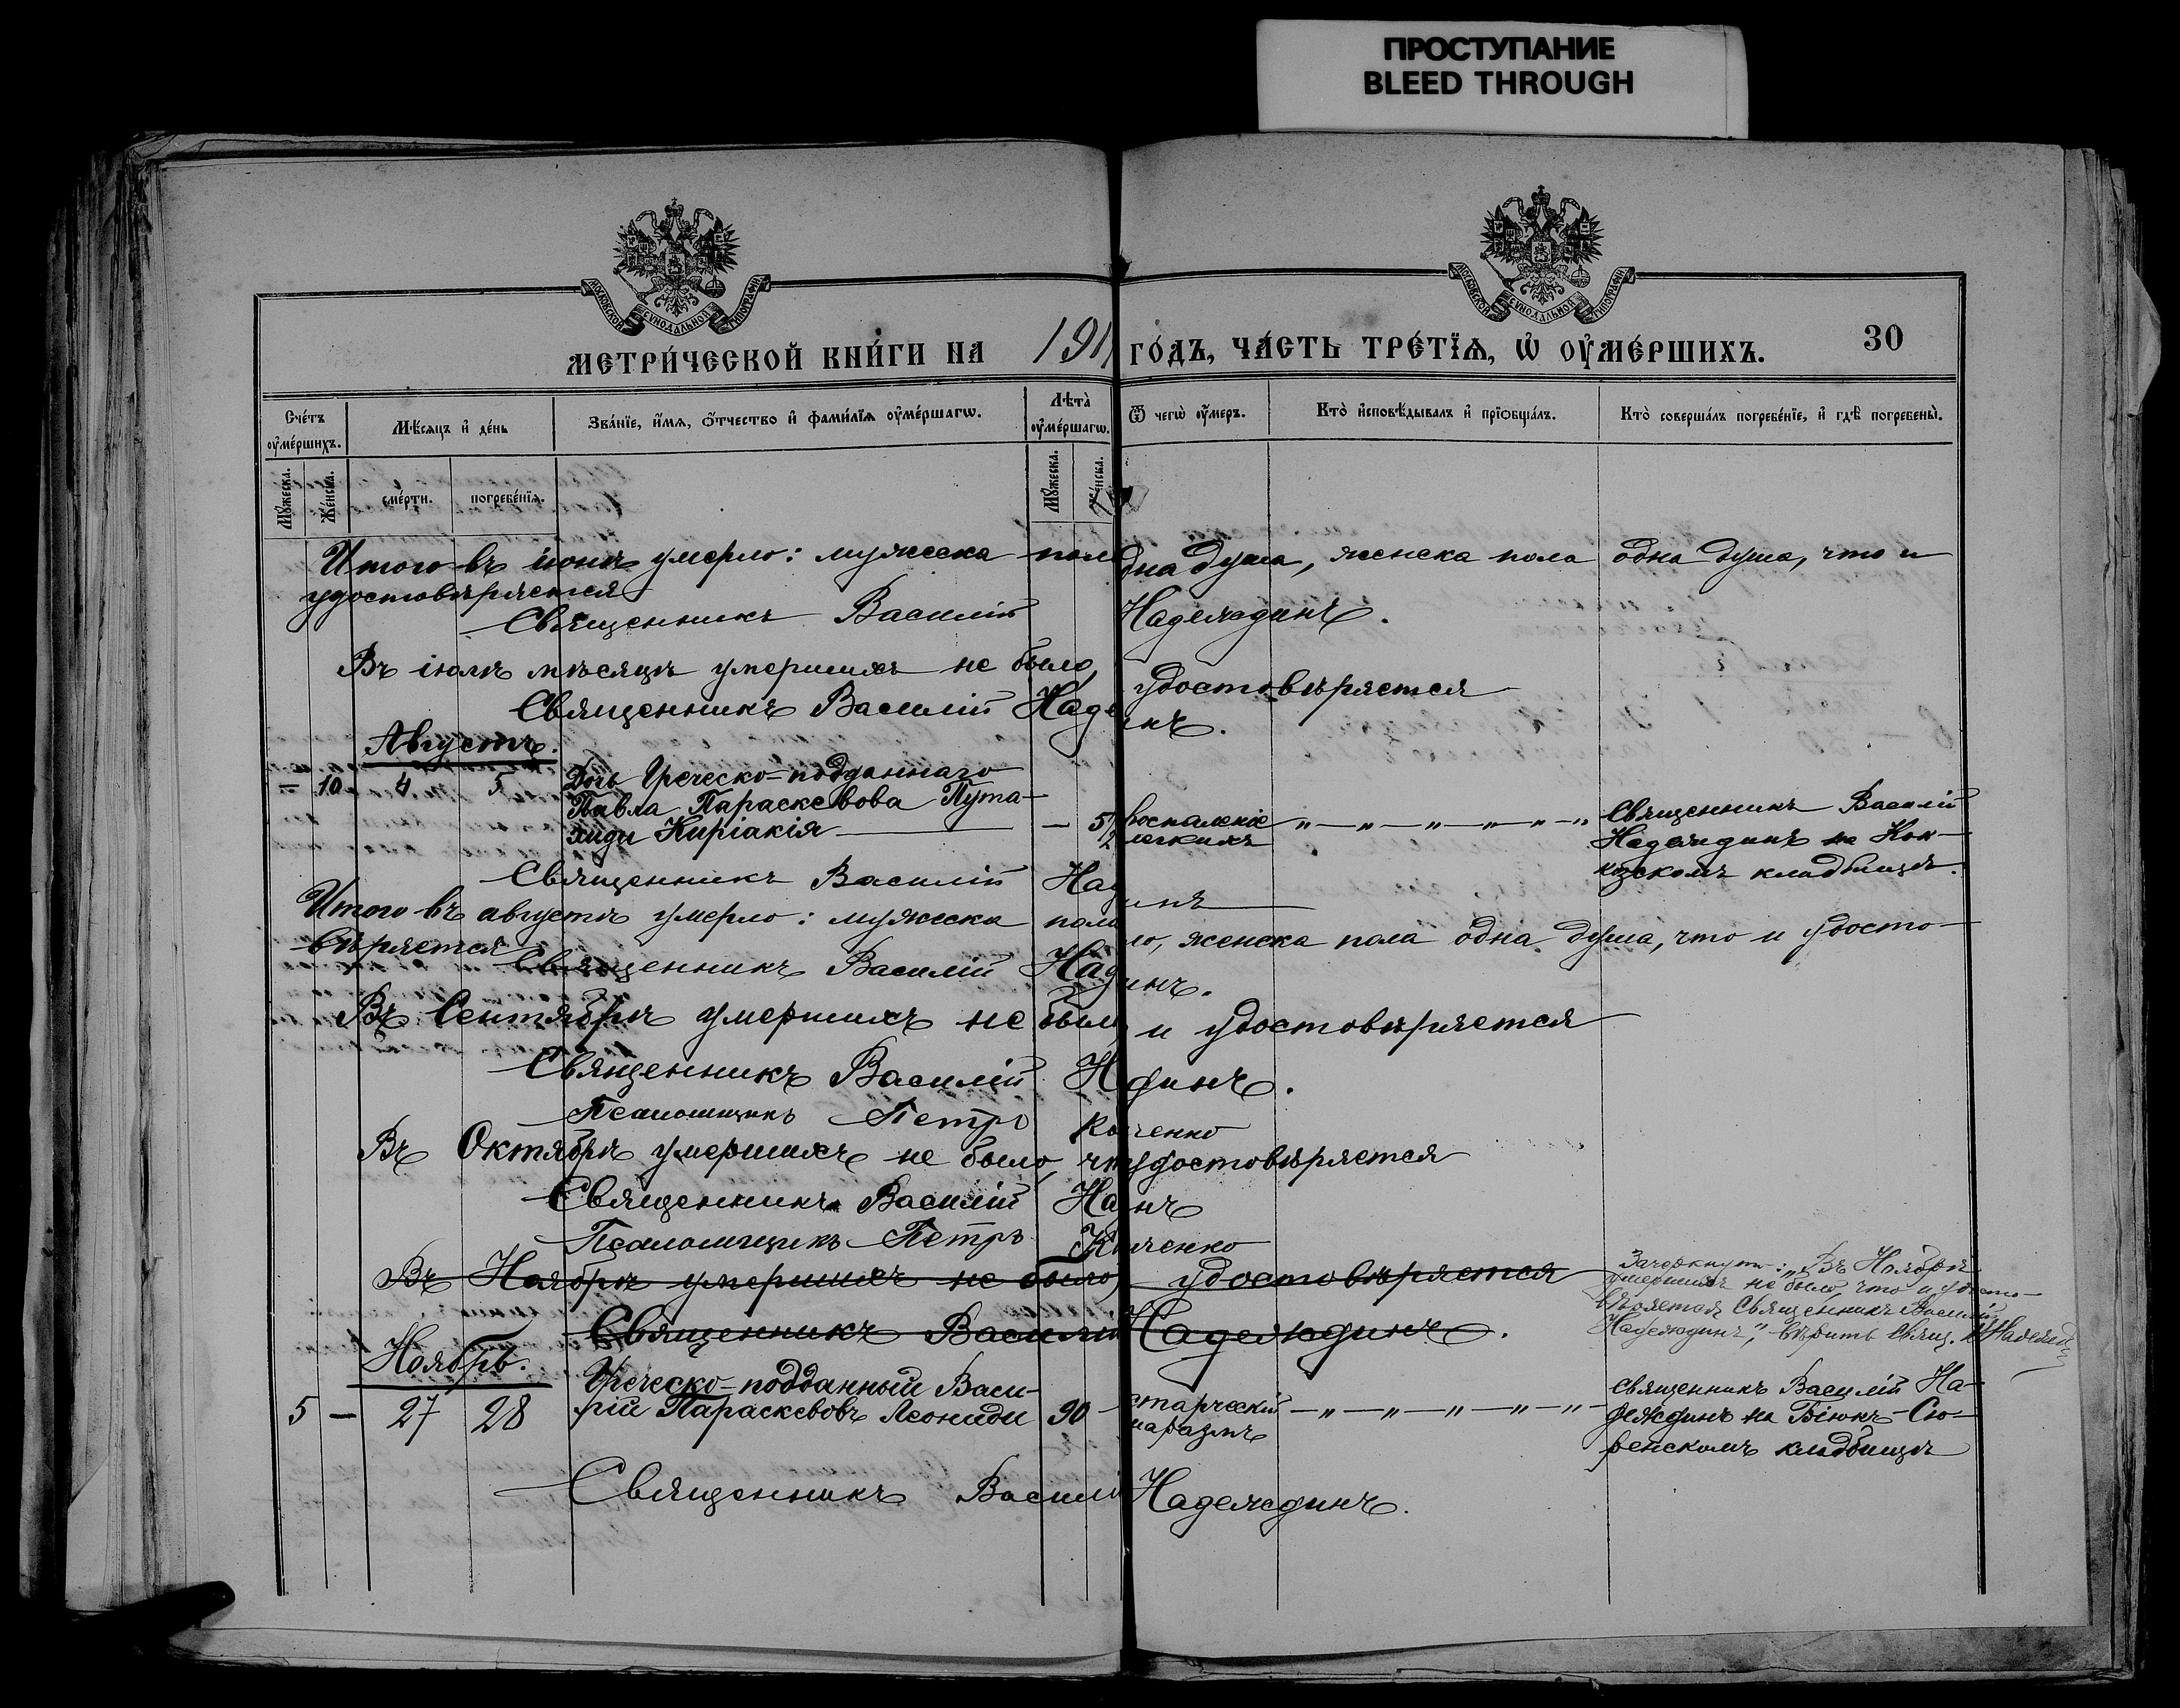 ПРОСТУПАНИЕ
BLEED THROUGH
МОСКОВСКОЙ СѴНОДАЛЬНОЙ ТИПОГРАФІИ
МОСКОВСКОЙ СѴНОДАЛЬНОЙ ТИПОГРАФІИ
МЕТРИ́ЧЕСКОЙ КНИ́ГИ НА 191 ГО́ДЪ, ЧА́СТЬ ТРЕ́ТЇѦ, Ѡ҆ ОУ҆МЕ́РШИХЪ.
30
Сче́тъ оу҆ме́ршихъ.
Мѣ́сяцъ и҆ де́нь
Зва́нїе, и҆́мѧ, ѻ҆́тчество и҆ фамилїѧ оу҆ме́ршагѡ.
Лѣта̀ оу҆ме́ршагѡ.
Ѿ чегѡ̀ оу҆́меръ.
Кто̀ и҆сповѣ́дывалъ и҆ прїѻбща́лъ.
Кто̀ соверша́лъ погребе́нїе, и҆ гдѣ̀ погребены̀.
Мꙋ́жеска.
Же́нска.
сме́рти.
погребе́нїѧ.
Мꙋ́жеска.
Же́нска.
Итого въ іюнѣ умерло: мужеска пола дна душа, женска пола одна душа, что и
удостовѣряется
Священникъ Василій Надеждинъ.
Въ іюлѣ мѣсяцѣ умершихъ не было, удостовѣряется
Священникъ Василій Наде инъ.
Августъ.
— 10 4 5 Дочь Греческо-подданнаго
Павла Параскевова Пута-
хиди Киріакія — 5 1/2 воспаленіе легкихъ „ — „ — „ — „ — „ — „ Священникъ Василій
Надеждинъ на Кок-
козскомъ кладбищѣ.
Священникъ Василій Над инъ
Итого въ августѣ умерло: мужеска пола ло, женска пола одна душа, что и удосто-
вѣряется
Священникъ Василій Над инъ.
Въ Сентябрѣ умершихъ не было и удостовѣряется
Священникъ Василій Н динъ.
Псаломщикъ Петръ ченко
Въ Октябрѣ умершихъ не было, чт удостовѣряется
Священникъ Василій На нъ
Псаломщикъ Петръ ченко
Въ Ноябрѣ умершихъ не было, удостовѣряется
Священникъ Василій Надеждинъ.
Зачеркнуто: „Въ Ноябрѣ
умершихъ не было, что и удосто-
вѣряется Священникъ Василій
Надеждинъ", вѣрить Свящ. В. Надежд
Ноябрь.
5 — 27 28 Греческо-подданный Васи-
рій Параскевовъ Леониди 90 старческій маразмъ — „ — „ — „ — „ — „ — Священникъ Василій На-
деждинъ на Біюкъ-Сю-
ренскомъ кладбищѣ
Священникъ Василій Надеждинъ.